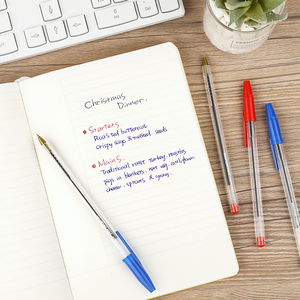 Christmas
Dinner.
Starters
Roasted butternut
crispy sage & toasted seeds
Mains.
Traditional roast turkey, roasties
pigs in blankets, cauliflower
cheese, sprouts & gravy.